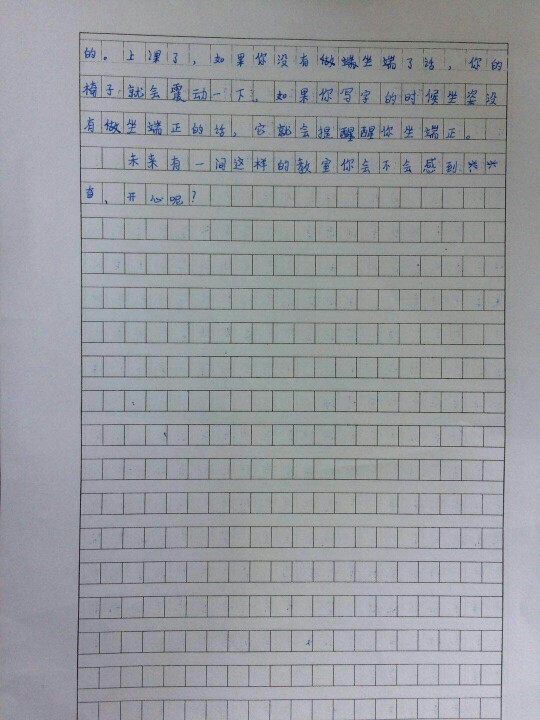 的。上课了，如果你没有做端坐端了话，你的
椅子就会震动一下，如果你写字的时候坐姿没
有做坐端正的话，它就会提醒醒你坐端正。
未来有一间这样的教室你会不会感到
、开心呢？